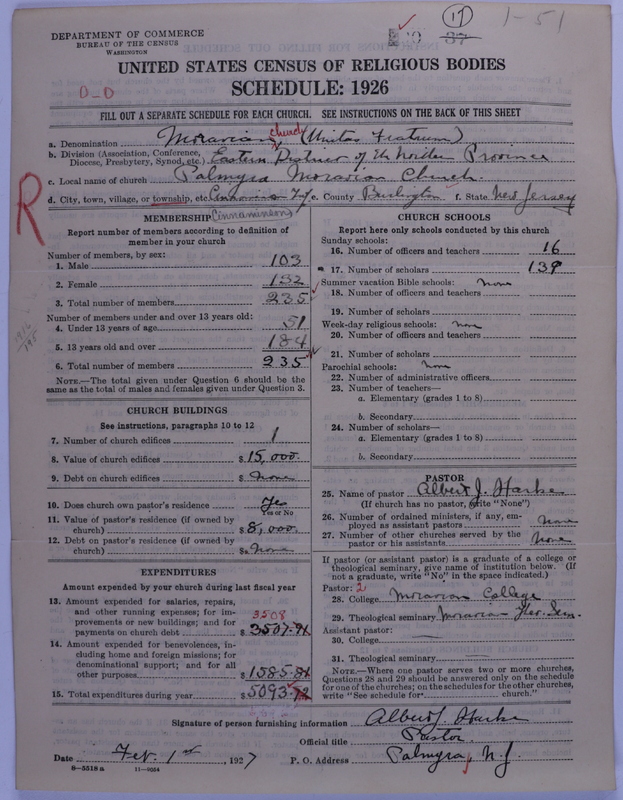 17
1-51
DEPARTMENT OF COMMERCE
BUREAU OF THE CENSUS
WASHINGTON
UNITED STATES CENSUS OF RELIGIOUS BODIES
SCHEDULE: 1926
FILL OUT A SEPARATE SCHEDULE FOR EACH CHURCH. SEE INSTRUCTIONS ON THE BACK OF THIS SHEET
a. Denomination Moravian church (Unitas Fratrum)
b. Division (Association, Conference, Diocese, Presbytery, Synod, etc.) Eastern District of the Northern Province
c. Local name of church Palmyra Moravian Church
d. City, town, village, or township, etc. Cinnaminson Twp e. County Burlington f. State New Jersey
R
MEMBERSHIP
(Cinnaminson)
Report number of members according to definition of
member in your church
Number of members, by sex:
1. Male 103
2. Female 132
3. Total number of members 235
Number of members under and over 13 years old:
4. Under 13 years of age 51
5. 13 years old and over 184
6. Total number of members 235
NOTE.—The total given under Question 6 should be the
same as the total of males and females given under Question 3.
CHURCH BUILDINGS
See instructions, paragraphs 10 to 12
7. Number of church edifices 1
8. Value of church edifices $ 15,000.
9. Debt on church edifices $ None
10. Does church own pastor's residence Yes
Yes or No
11. Value of pastor's residence (if owned by
church) $ 8,000.
12. Debt on pastor's residence (if owned by
church) $ None
EXPENDITURES
Amount expended by your church during last fiscal year
13. Amount expended for salaries, repairs,
and other running expenses; for im-
provements or new buildings; and for
payments on church debt $ 3507.91
3508
14. Amount expended for benevolences, in-
cluding home and foreign missions; for
denominational support; and for all
other purposes $ 1585.81
15. Total expenditures during year $ 5093.72
CHURCH SCHOOLS
Report here only schools conducted by this church
Sunday schools:
16. Number of officers and teachers 16
17. Number of scholars 139
Summer vacation Bible schools: none
18. Number of officers and teachers
19. Number of scholars
Week-day religious schools: none
20. Number of officers and teachers
21. Number of scholars
Parochial schools: None
22. Number of administrative officers
23. Number of teachers—
a. Elementary (grades 1 to 8)
b. Secondary
24. Number of scholars—
a. Elementary (grades 1 to 8)
b. Secondary
PASTOR
25. Name of pastor Albert J. Harke
(If church has no pastor, write "None")
26. Number of ordained ministers, if any, em-
ployed as assistant pastors None
27. Number of other churches served by the
pastor or his assistants None
If pastor (or assistant pastor) is a graduate of a college or
theological seminary, give name of institution below. (If
not a graduate, write "No" in the space indicated.)
Pastor: 2
28. College Moravian College
29. Theological seminary Moravian Theo. Sem.
Assistant pastor:
30. College
31. Theological seminary
NOTE.—Where one pastor serves two or more churches,
Questions 28 and 29 should be answered only on the schedule
for one of the churches; on the schedules for the other churches,
write "See schedule for church."
Signature of person furnishing information Albert J. Harke
Official title Pastor
Date Feb. 1st, 1927 P. O. Address Palmyra, N.J.
8—5518 a 11—9054